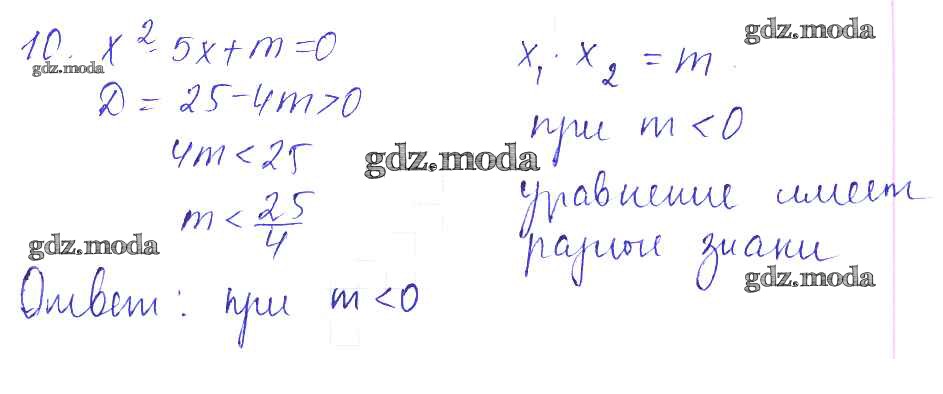 10. x² - 5x + m = 0
D = 25 - 4m > 0
4m < 25
m < 25/4
Ответ: при m < 0
x₁ · x₂ = m
при m < 0
уравнение имеет
разные знаки
gdz.moda
gdz.moda
gdz.moda
gdz.moda
gdz.moda